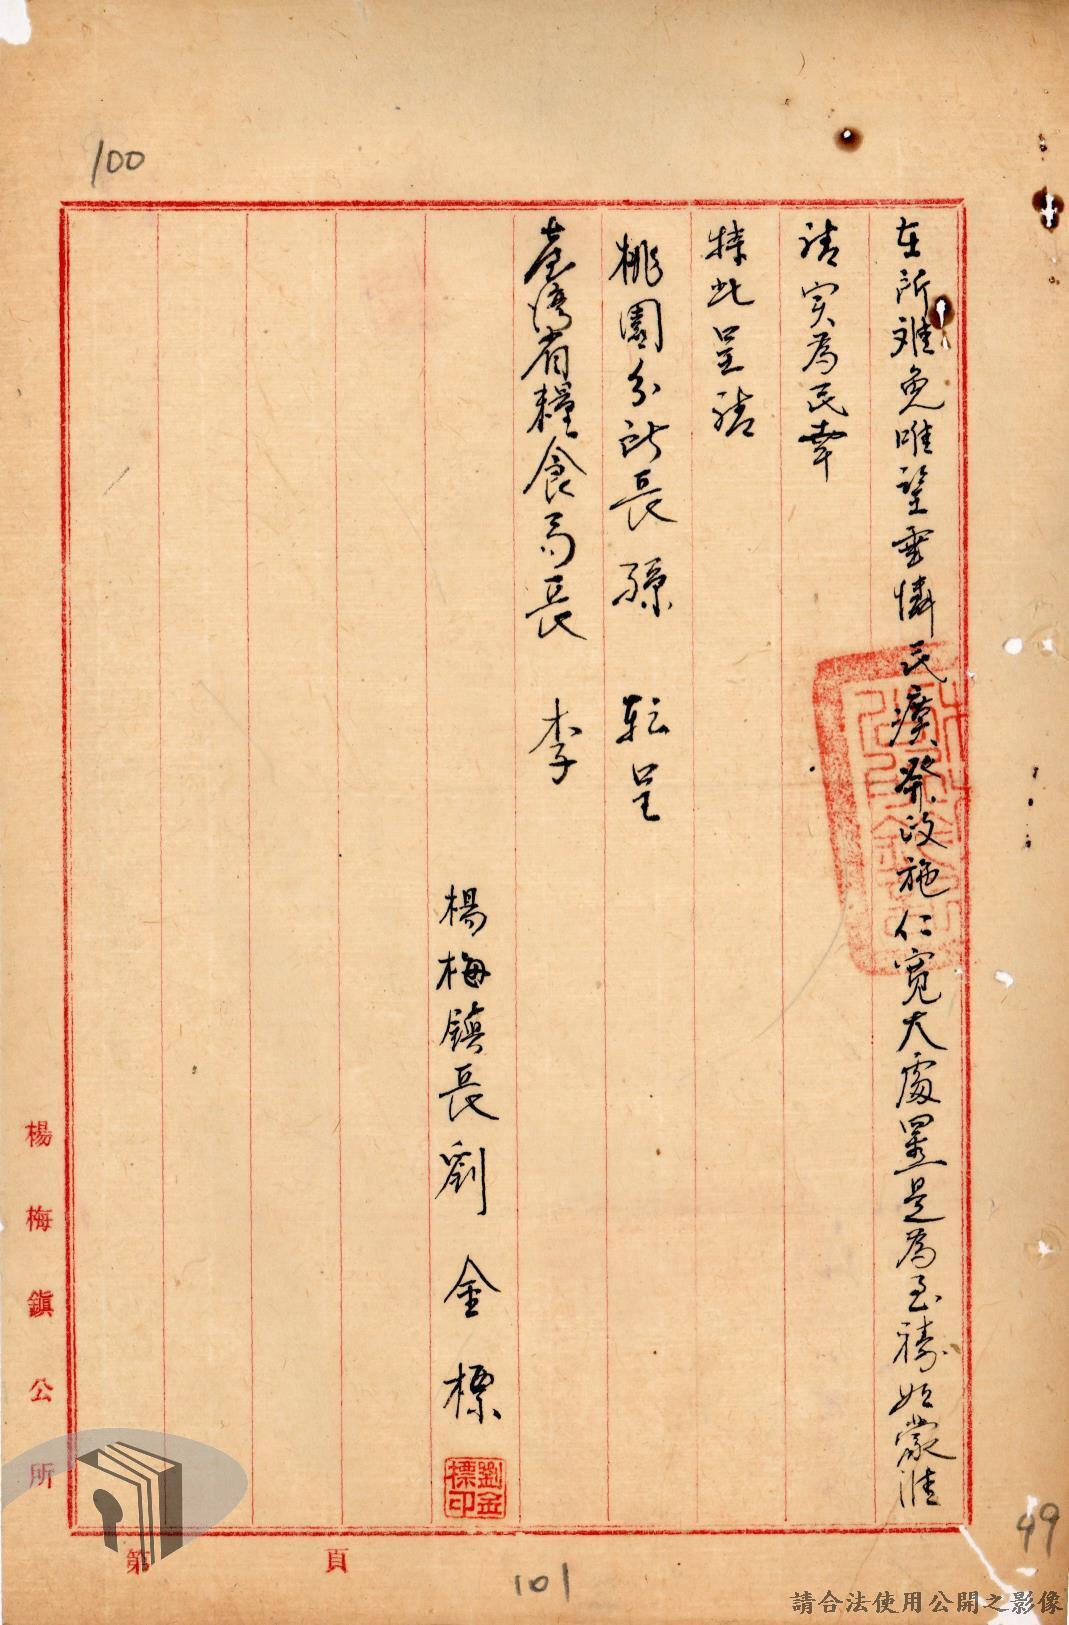 100
在所难免唯望垂憐民瘼發政施仁寬大處置是為至禱如蒙准
請实為民幸
特此呈請
桃園分所長孫 転呈
臺湾省糧食局長 李
楊梅鎮長劉金標
劉金標印
楊梅鎮公所
第 頁
101
49
請合法使用公開之影像